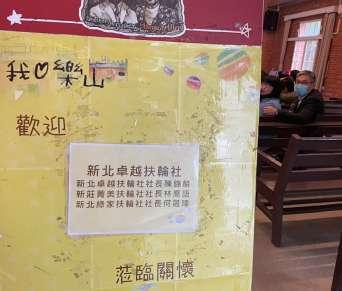 我♡樂山
歡迎
新北卓越扶輪社
新北卓越扶輪社社長陳錦麟
新莊菁英扶輪社社長林 語
新北綠家扶輪社社長何 瑋
蒞臨關懷